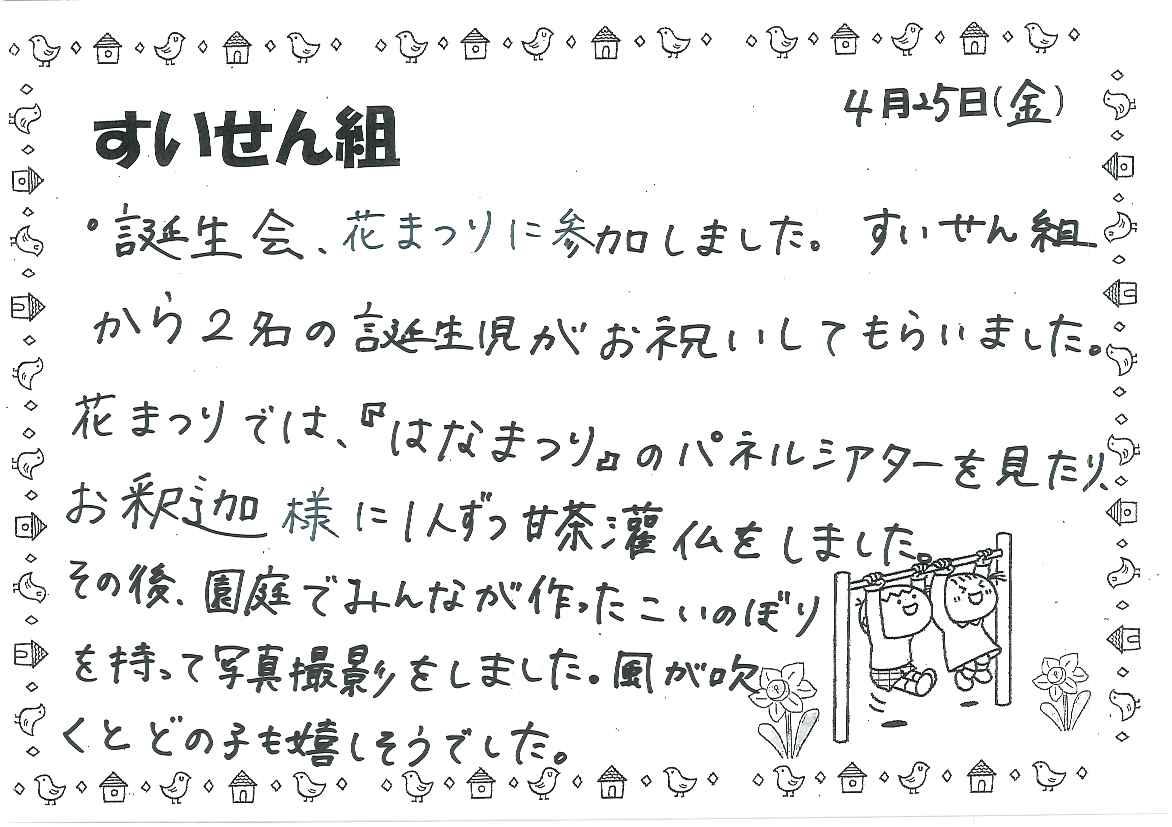 4月25日(金)
すいせん組
・誕生会、花まつりに参加しました。すいせん組
から2名の誕生児がお祝いしてもらいました。
花まつりでは、『はなまつり』のパネルシアターを見たり、
お釈迦様に1人ずつ甘茶灌仏をしました。
その後、園庭でみんなが作ったこいのぼり
を持って写真撮影をしました。風が吹
くとどの子も嬉しそうでした。